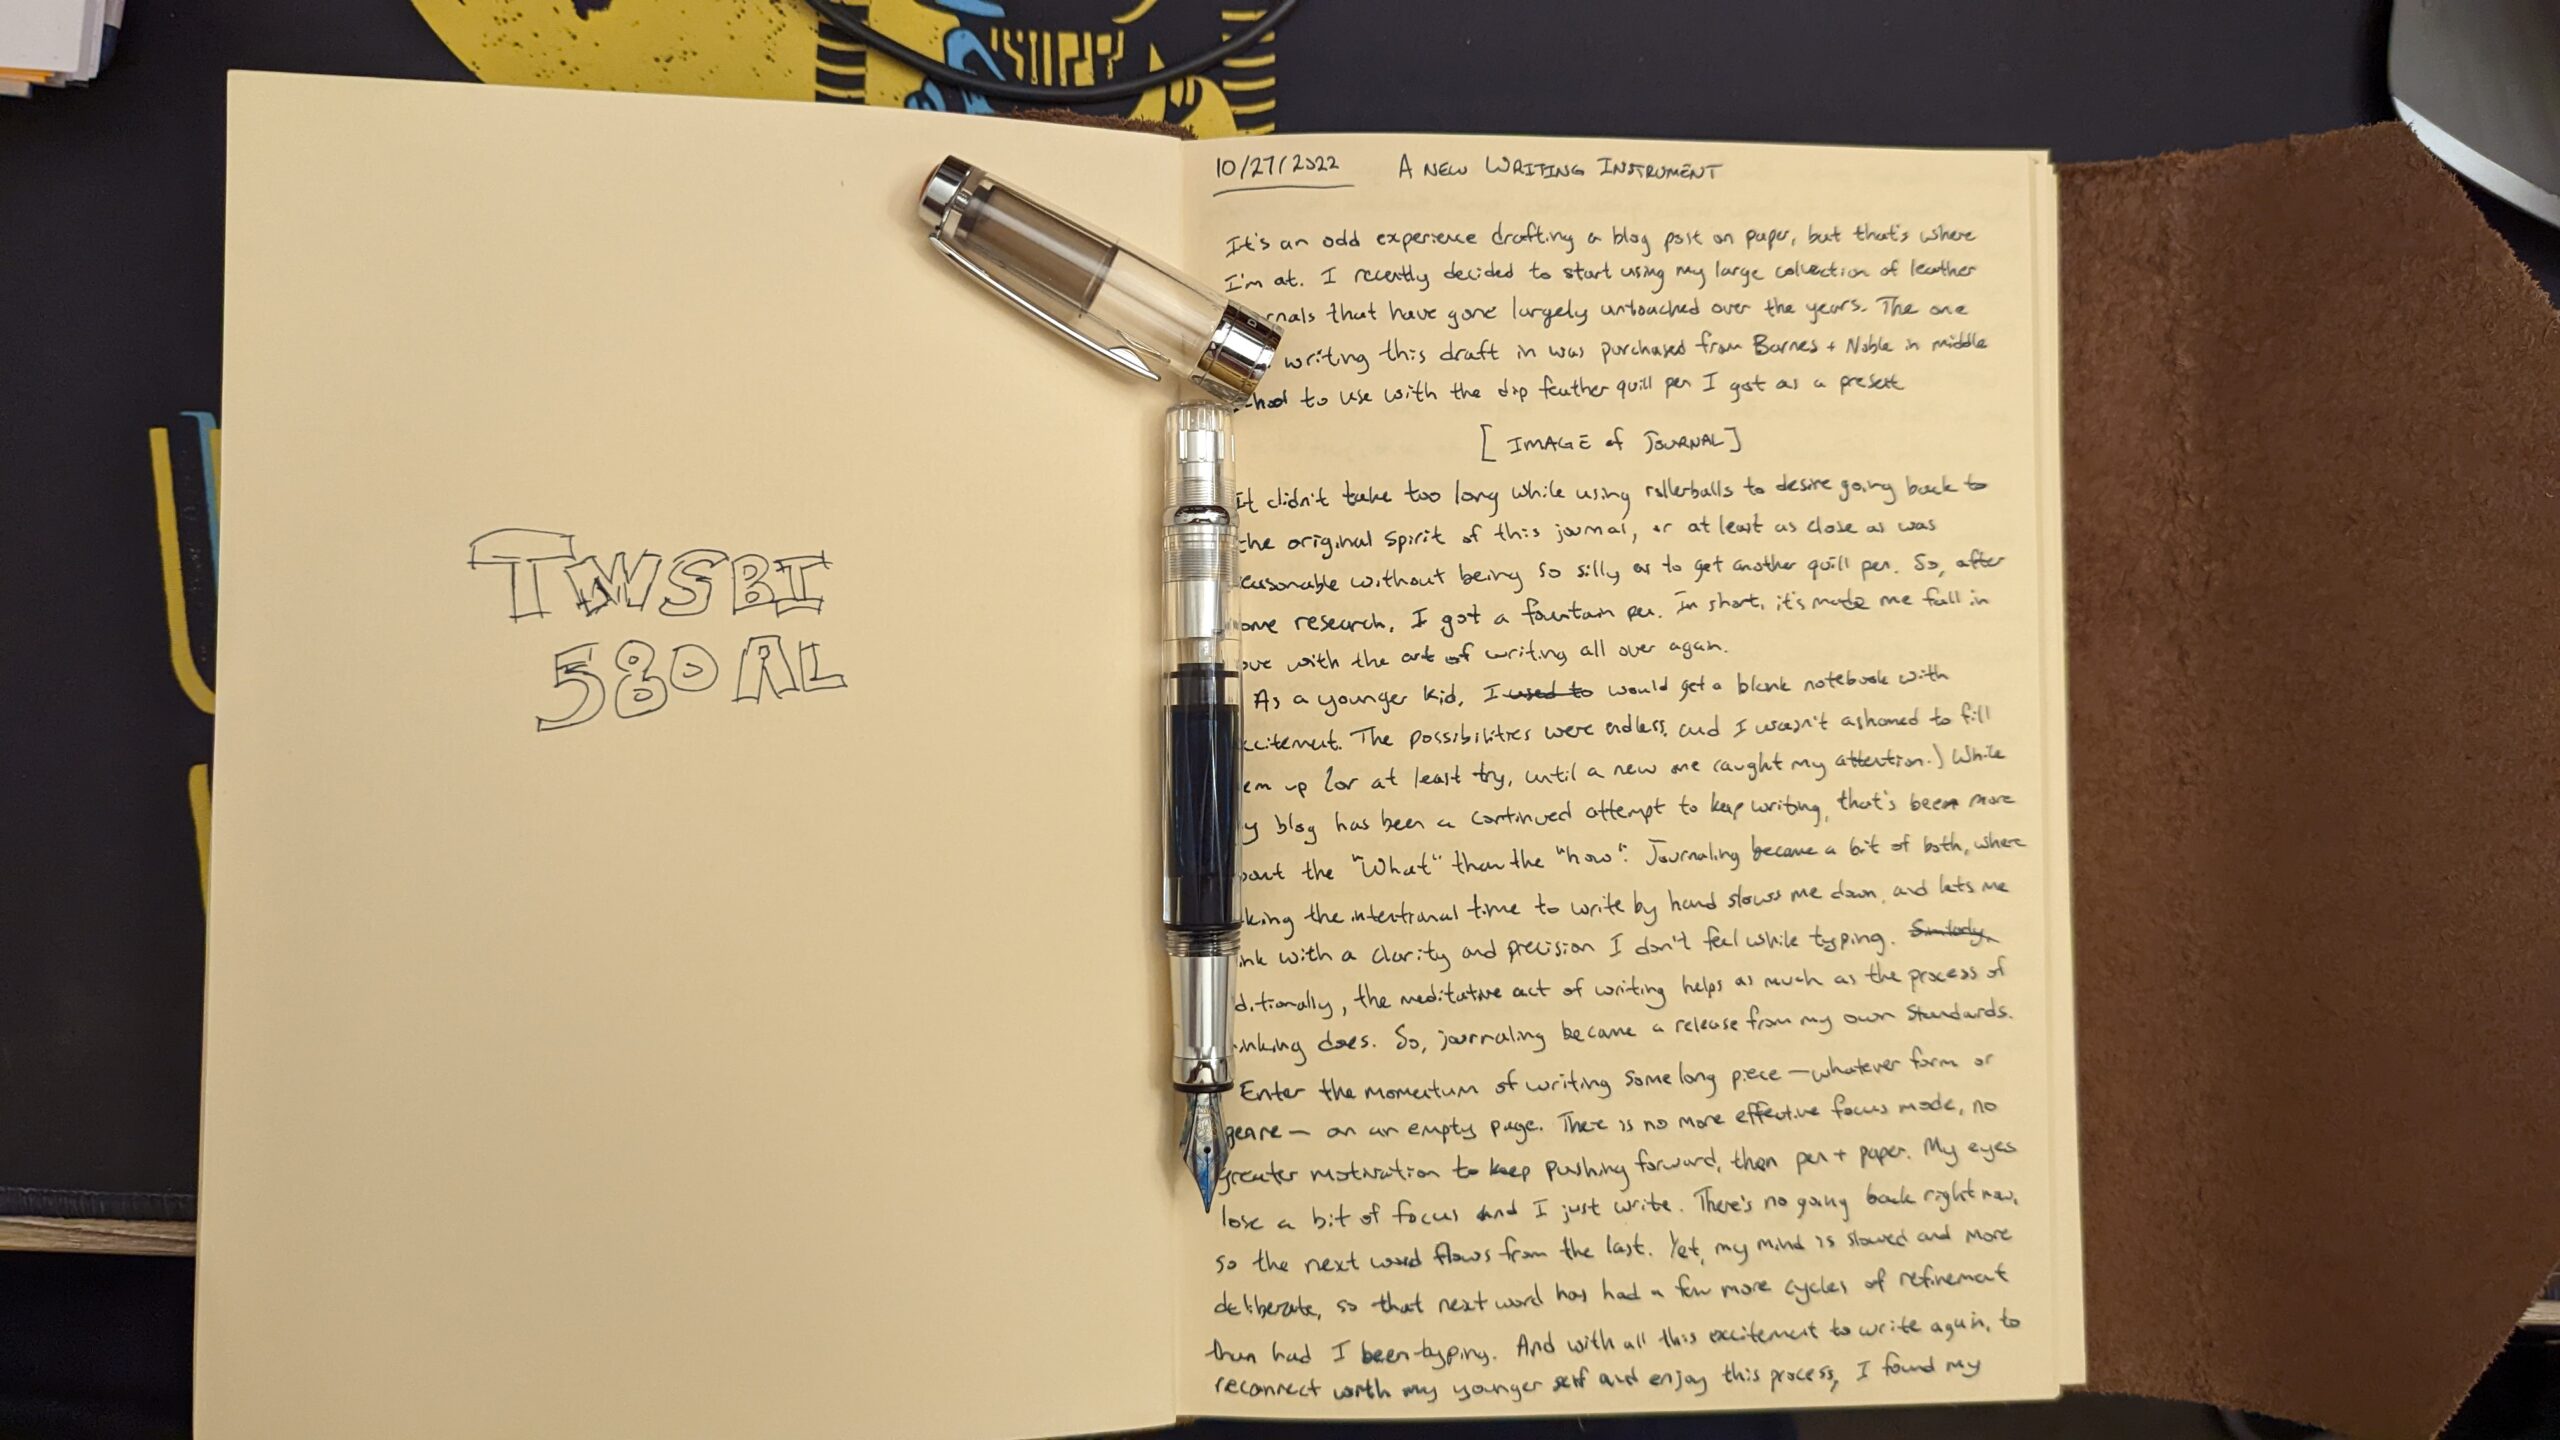 TWSBI
580 AL
10/27/2022 A NEW WRITING INSTRUMENT
It's an odd experience drafting a blog post on paper, but that's where
I'm at. I recently decided to start using my large collection of leather
rnals that have gone largely untouched over the years. The one
writing this draft in was purchased from Barnes + Noble in middle
chool to use with the dip feather quill pen I got as a present
[IMAGE of JOURNAL]
It didn't take too long while using rollerballs to desire going back to
the original spirit of this journal, or at least as close as was
reasonable without being so silly as to get another quill pen. So, after
ome research, I got a fountain pen. In short, it's made me fall in
ove with the art of writing all over again.
As a younger kid, I used to would get a blank notebook with
xcitement. The possibilities were endless, and I wasn't ashamed to fill
em up (or at least try, until a new one caught my attention.) While
y blog has been a continued attempt to keep writing, that's been more
bout the "What" than the "how". Journaling became a bit of both, where
king the intentional time to write by hand slows me down, and lets me
ink with a clarity and precision I don't feel while typing. Similarly,
ditionally, the meditative act of writing helps as much as the process of
inking does. So, journaling became a release from my own standards.
Enter the momentum of writing some long piece — whatever form or
genre — on an empty page. There is no more effective focus mode, no
greater motivation to keep pushing forward, than pen + paper. My eyes
lose a bit of focus and I just write. There's no going back right now,
so the next word flows from the last. Yet, my mind is slowed and more
deliberate, so that next word has had a few more cycles of refinement
than had I been typing. And with all this excitement to write again, to
reconnect with my younger self and enjoy this process, I found my